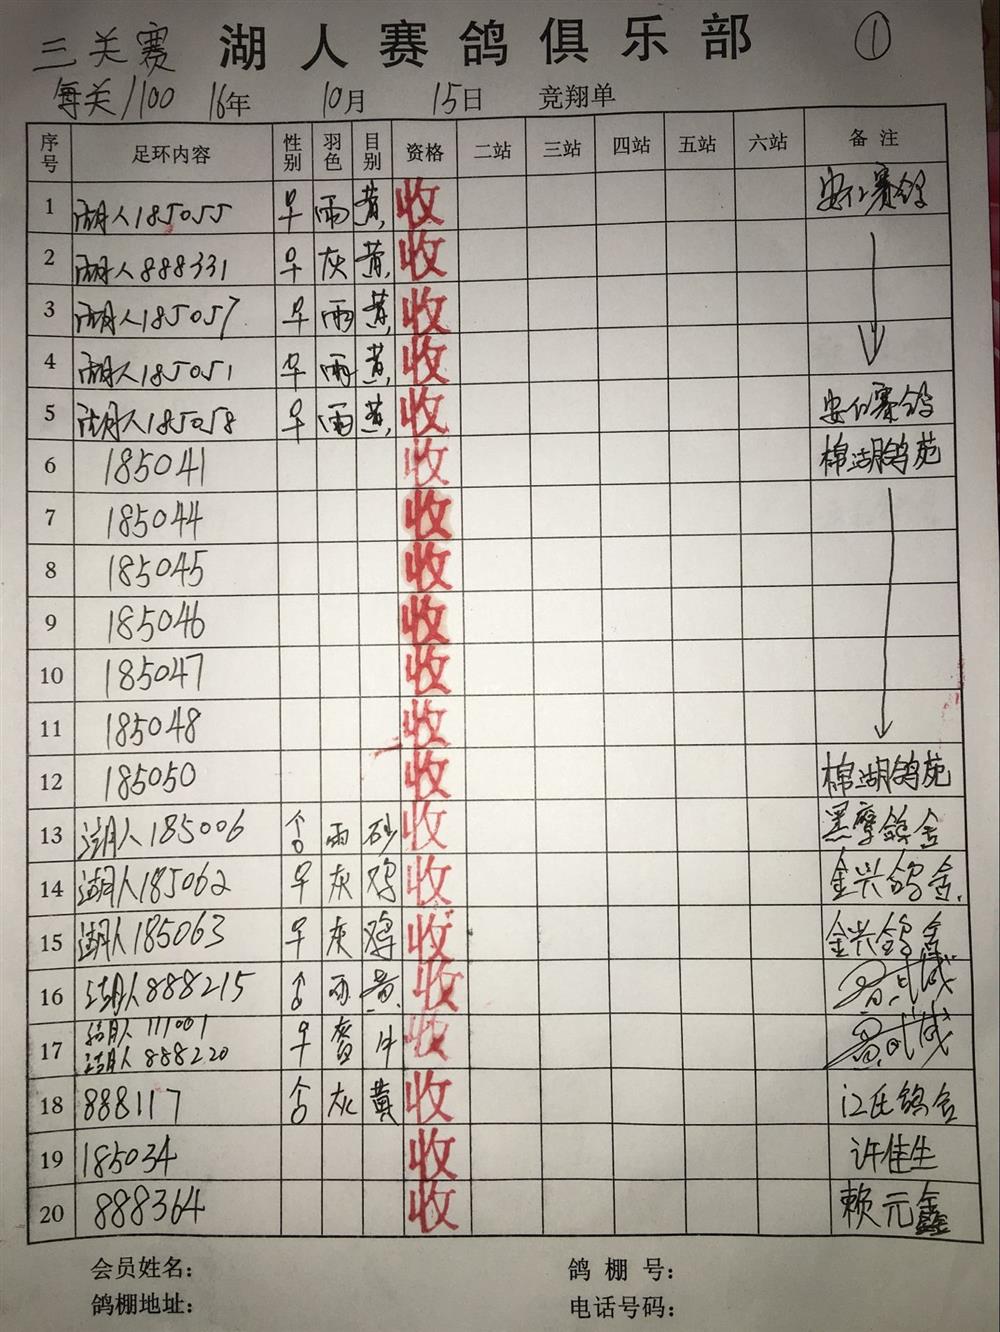 三关赛 湖人赛鸽俱乐部 ①
每关/100 16年 10月 15日 竞翔单
序号 足环内容 性别 羽色 目别 资格 二站 三站 四站 五站 六站 备注
1 湖人185055 雨 黄 收 安仁赛鸽
2 湖人888331 灰 黄 收
3 湖人185057 雨 黄 收
4 湖人185051 雨 黄 收
5 湖人185058 雨 黄 收 安仁赛鸽
6 185041 收 棉湖鸽苑
7 185044 收
8 185045 收
9 185046 收
10 185047 收
11 185048 收
12 185050 收 棉湖鸽苑
13 湖人185006 雨 砂 收
14 湖人185062 灰 鸡 收 金兴鸽舍
15 湖人185063 灰 鸡 收 金兴鸽舍
16 湖人888215 雨 黄 收
17 湖人111001 收
湖人888220
18 888117 灰 黄 收 江氏鸽舍
19 185034 收 许佳生
20 888364 收 赖元鑫
会员姓名： 鸽棚号：
鸽棚地址： 电话号码：